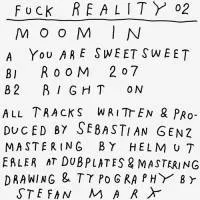 FUCK REALITY 02
MOOMIN
A YOU ARE SWEET SWEET
B1 ROOM 207
B2 RIGHT ON
ALL TRACKS WRITTEN & PRO-
DUCED BY SEBASTIAN GENZ
MASTERING BY HELMUT
ERLER AT DUBPLATES & MASTERING
DRAWING & TYPOGRAPHY BY
STEFAN MARX